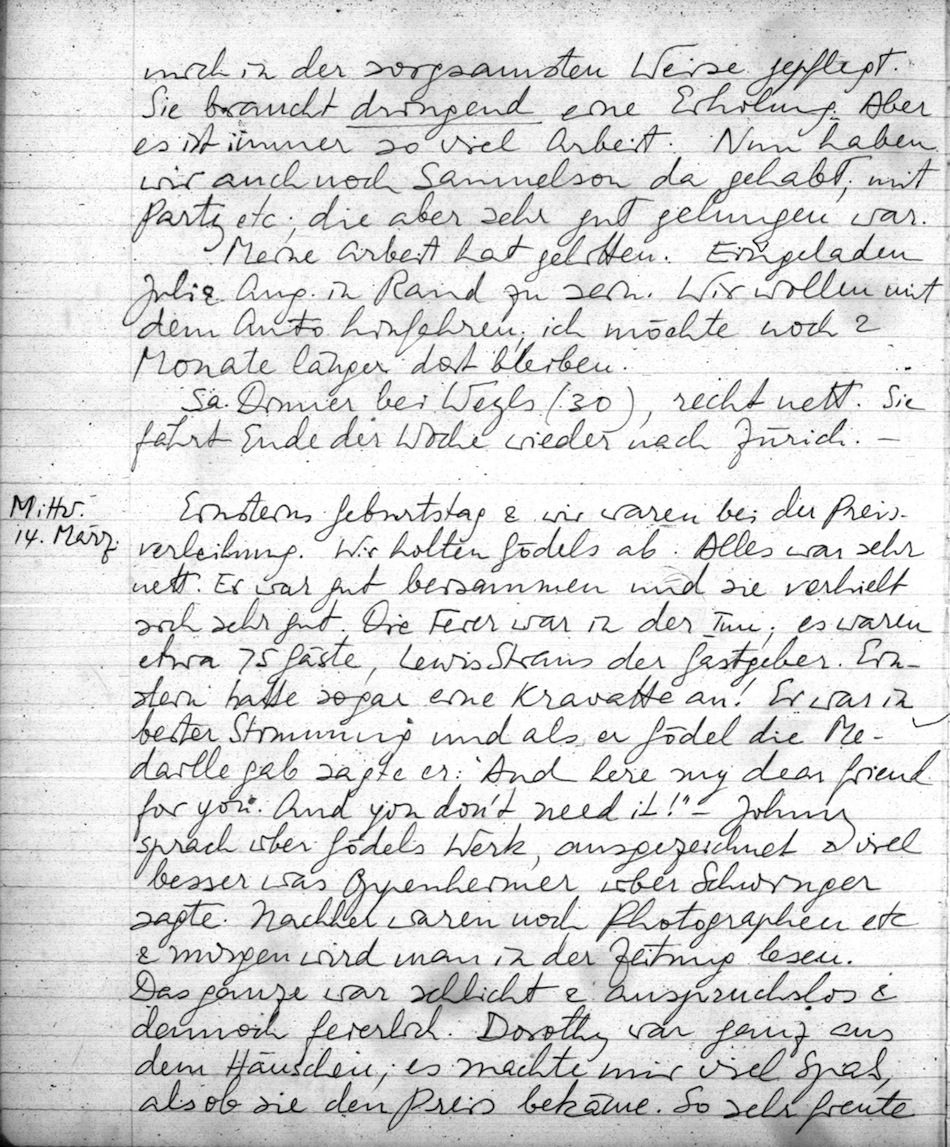 mich in der sorgsamsten Weise gepflegt.
Sie braucht dringend eine Erholung. Aber
es ist immer so viel Arbeit. Nun haben
wir auch noch Samuelson da gehabt, mit
Party etc, die aber sehr gut gelungen war.
Meine Arbeit hat gelitten. Eingeladen
Juli & Aug. in Rand zu sein. Wir wollen mit
dem Auto hinfahren; ich möchte noch 2
Monate länger dort bleiben.
Sa. Dinner bei Weyls (30), recht nett. Sie
fährt Ende der Woche wieder nach Zürich. –
Mittw.
14. März.
Einsteins Geburtstag & wir waren bei der Preis-
verleihung. Wir holten Gödels ab. Alles war sehr
nett. Er war gut beisammen und sie verhielt
sich sehr gut. Die Feier war in der Inn; es waren
etwa 75 Gäste, Lewis Straus der Gastgeber. Ein-
stein hatte sogar eine Kravatte an! Er war in
bester Stimmung und als er Gödel die Me-
daille gab sagte er: "And here my dear friend
for you. And you don't need it!" – Johnny
sprach über Gödels Werk, ausgezeichnet & viel
besser was Oppenheimer über Schwinger
sagte. Nachher waren noch Photographen etc
& morgen wird man in der Zeitung lesen.
Das ganze war schlicht & anspruchslos &
dennoch feierlich. Dorothy war ganz aus
dem Häuschen, es machte mir viel Spaß,
als ob sie den Preis bekäme. So sehr freute